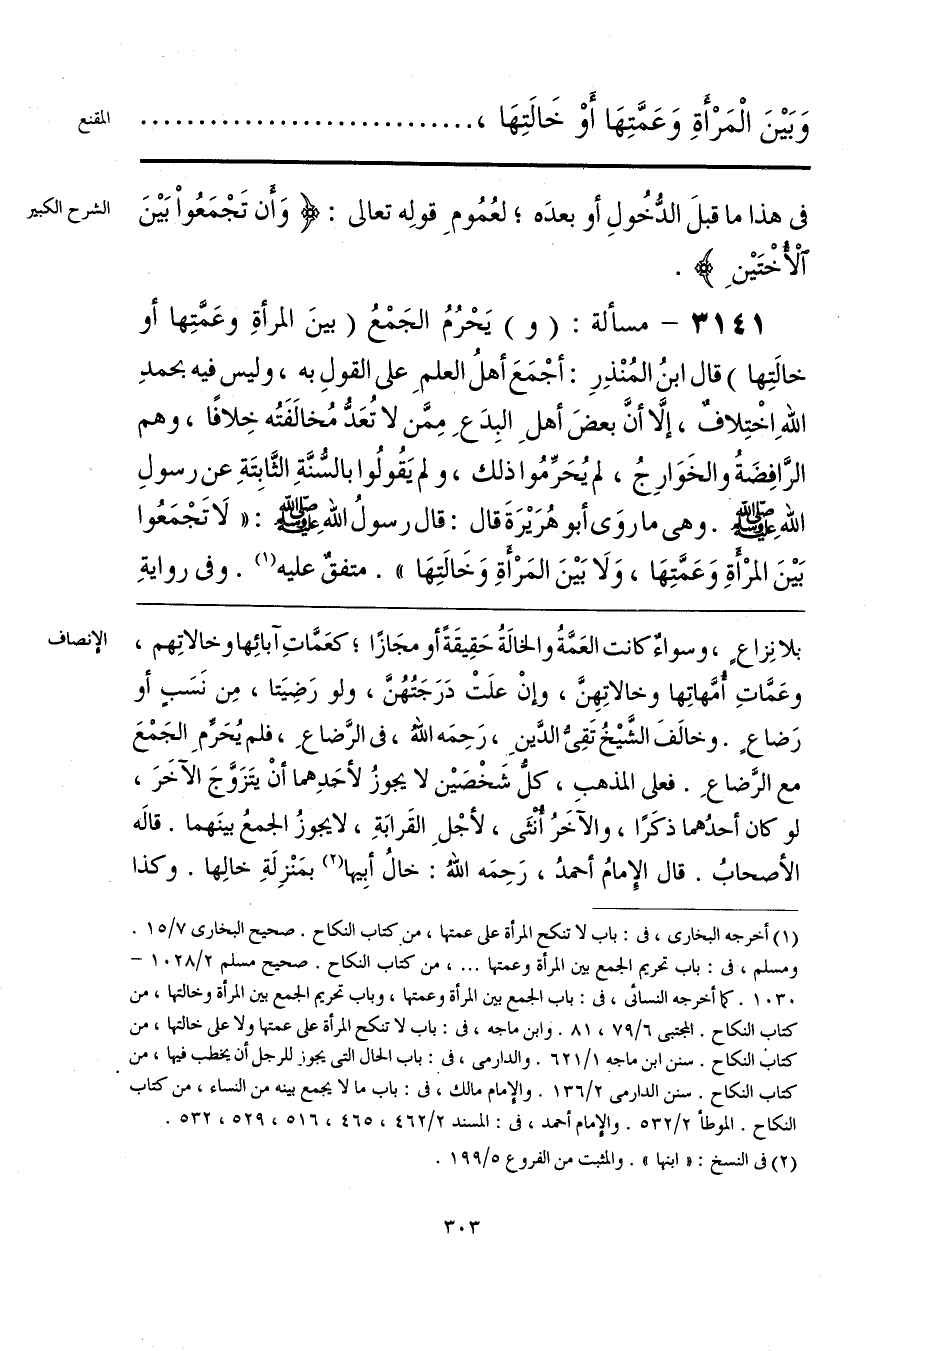 وَبَيْنَ الْمَرْأَةِ وَعَمَّتِهَا أَوْ خَالَتِهَا ، ............................. المقنع
فى هذا ما قبلَ الدُّخُولِ أو بعدَه ؛ لعُمُومِ قولِه تعالى : ﴿ وَأَن تَجْمَعُواْ بَيْنَ الشرح الكبير
ٱلْأُخْتَيْنِ ﴾ .
٣١٤١ – مسألة : ( و ) يَحْرُمُ الجَمْعُ ( بينَ المرأةِ وعَمَّتِها أو
خالَتِها ) قال ابنُ المُنْذِرِ : أجْمَعَ أهلُ العلمِ على القولِ به ، وليس فيه بحمدِ
اللهِ اخْتِلافٌ ، إلَّا أنَّ بعضَ أهلِ البِدَعِ مِمَّن لا تُعَدُّ مُخالَفَتُه خِلافًا ، وهم
الرَّافِضَةُ والخَوارِجُ ، لم يُحَرِّمُوا ذلك ، ولم يَقُولُوا بالسُّنَّةِ الثَّابِتَةِ عن رسولِ
اللهِ ﷺ . وهى ما روَى أبو هُرَيْرَةَ قال : قال رسولُ اللهِ ﷺ : « لَا تَجْمَعُوا
بَيْنَ المَرْأَةِ وَعَمَّتِهَا ، وَلَا بَيْنَ المَرْأَةِ وَخَالَتِهَا » . متفقٌ عليه(١) . وفى روايةِ
بلا نِزاعٍ ، وسواءٌ كانت العَمَّةُ والخالَةُ حَقِيقَةً أو مجَازًا ؛ كعَمَّاتِ آبائِها وخالاتِهم ، الإنصاف
وعَمَّاتِ أُمَّهاتِها وخالاتِهنَّ ، وإنْ علَتْ دَرَجَتُهُنَّ ، ولو رَضِيَتا ، مِن نَسَبٍ أو
رَضاعٍ . وخالَفَ الشَّيْخُ تَقِىُّ الدِّينِ ، رَحِمَه اللهُ ، فى الرَّضاعِ ، فلم يُحَرِّمِ الجَمْعَ
مع الرَّضاعِ . فعلى المذهبِ ، كلُّ شَخْصَيْن لا يجوزُ لأحَدِهما أنْ يتَزَوَّجَ الآخَرَ ،
لو كان أحدُهما ذكَرًا ، والآخَرُ أُنْثَى ، لأجْلِ القَرابَةِ ، لا يجوزُ الجمعُ بينَهما . قالَه
الأصحابُ . قال الإِمامُ أحمدُ ، رَحِمَه اللهُ : خالُ أبِيها(٢) بمَنْزِلَةِ خالِها . وكذا
(١) أخرجه البخارى ، فى : باب لا تنكح المرأة على عمتها ، من كتاب النكاح . صحيح البخارى ١٥/٧ .
ومسلم ، فى : باب تحريم الجمع بين المرأة وعمتها ... ، من كتاب النكاح . صحيح مسلم ١٠٢٨/٢ –
١٠٣٠ . كما أخرجه النسائى ، فى : باب الجمع بين المرأة وعمتها ، وباب تحريم الجمع بين المرأة وخالتها ، من
كتاب النكاح . المجتبى ٧٩/٦ ، ٨١ . وابن ماجه ، فى : باب لا تنكح المرأة على عمتها ولا على خالتها ، من
كتاب النكاح . سنن ابن ماجه ٦٢١/١ . والدارمى ، فى : باب الحال التى يجوز للرجل أن يخطب فيها ، من
كتاب النكاح . سنن الدارمى ١٣٦/٢ . والإمام مالك ، فى : باب ما لا يجمع بينه من النساء ، من كتاب
النكاح . الموطأ ٥٣٢/٢ . والإمام أحمد ، فى : المسند ٤٦٢/٢ ، ٤٦٥ ، ٥١٦ ، ٥٢٩ ، ٥٣٢ .
(٢) فى النسخ : « ابنها » . والمثبت من الفروع ١٩٩/٥ .
٣٠٣